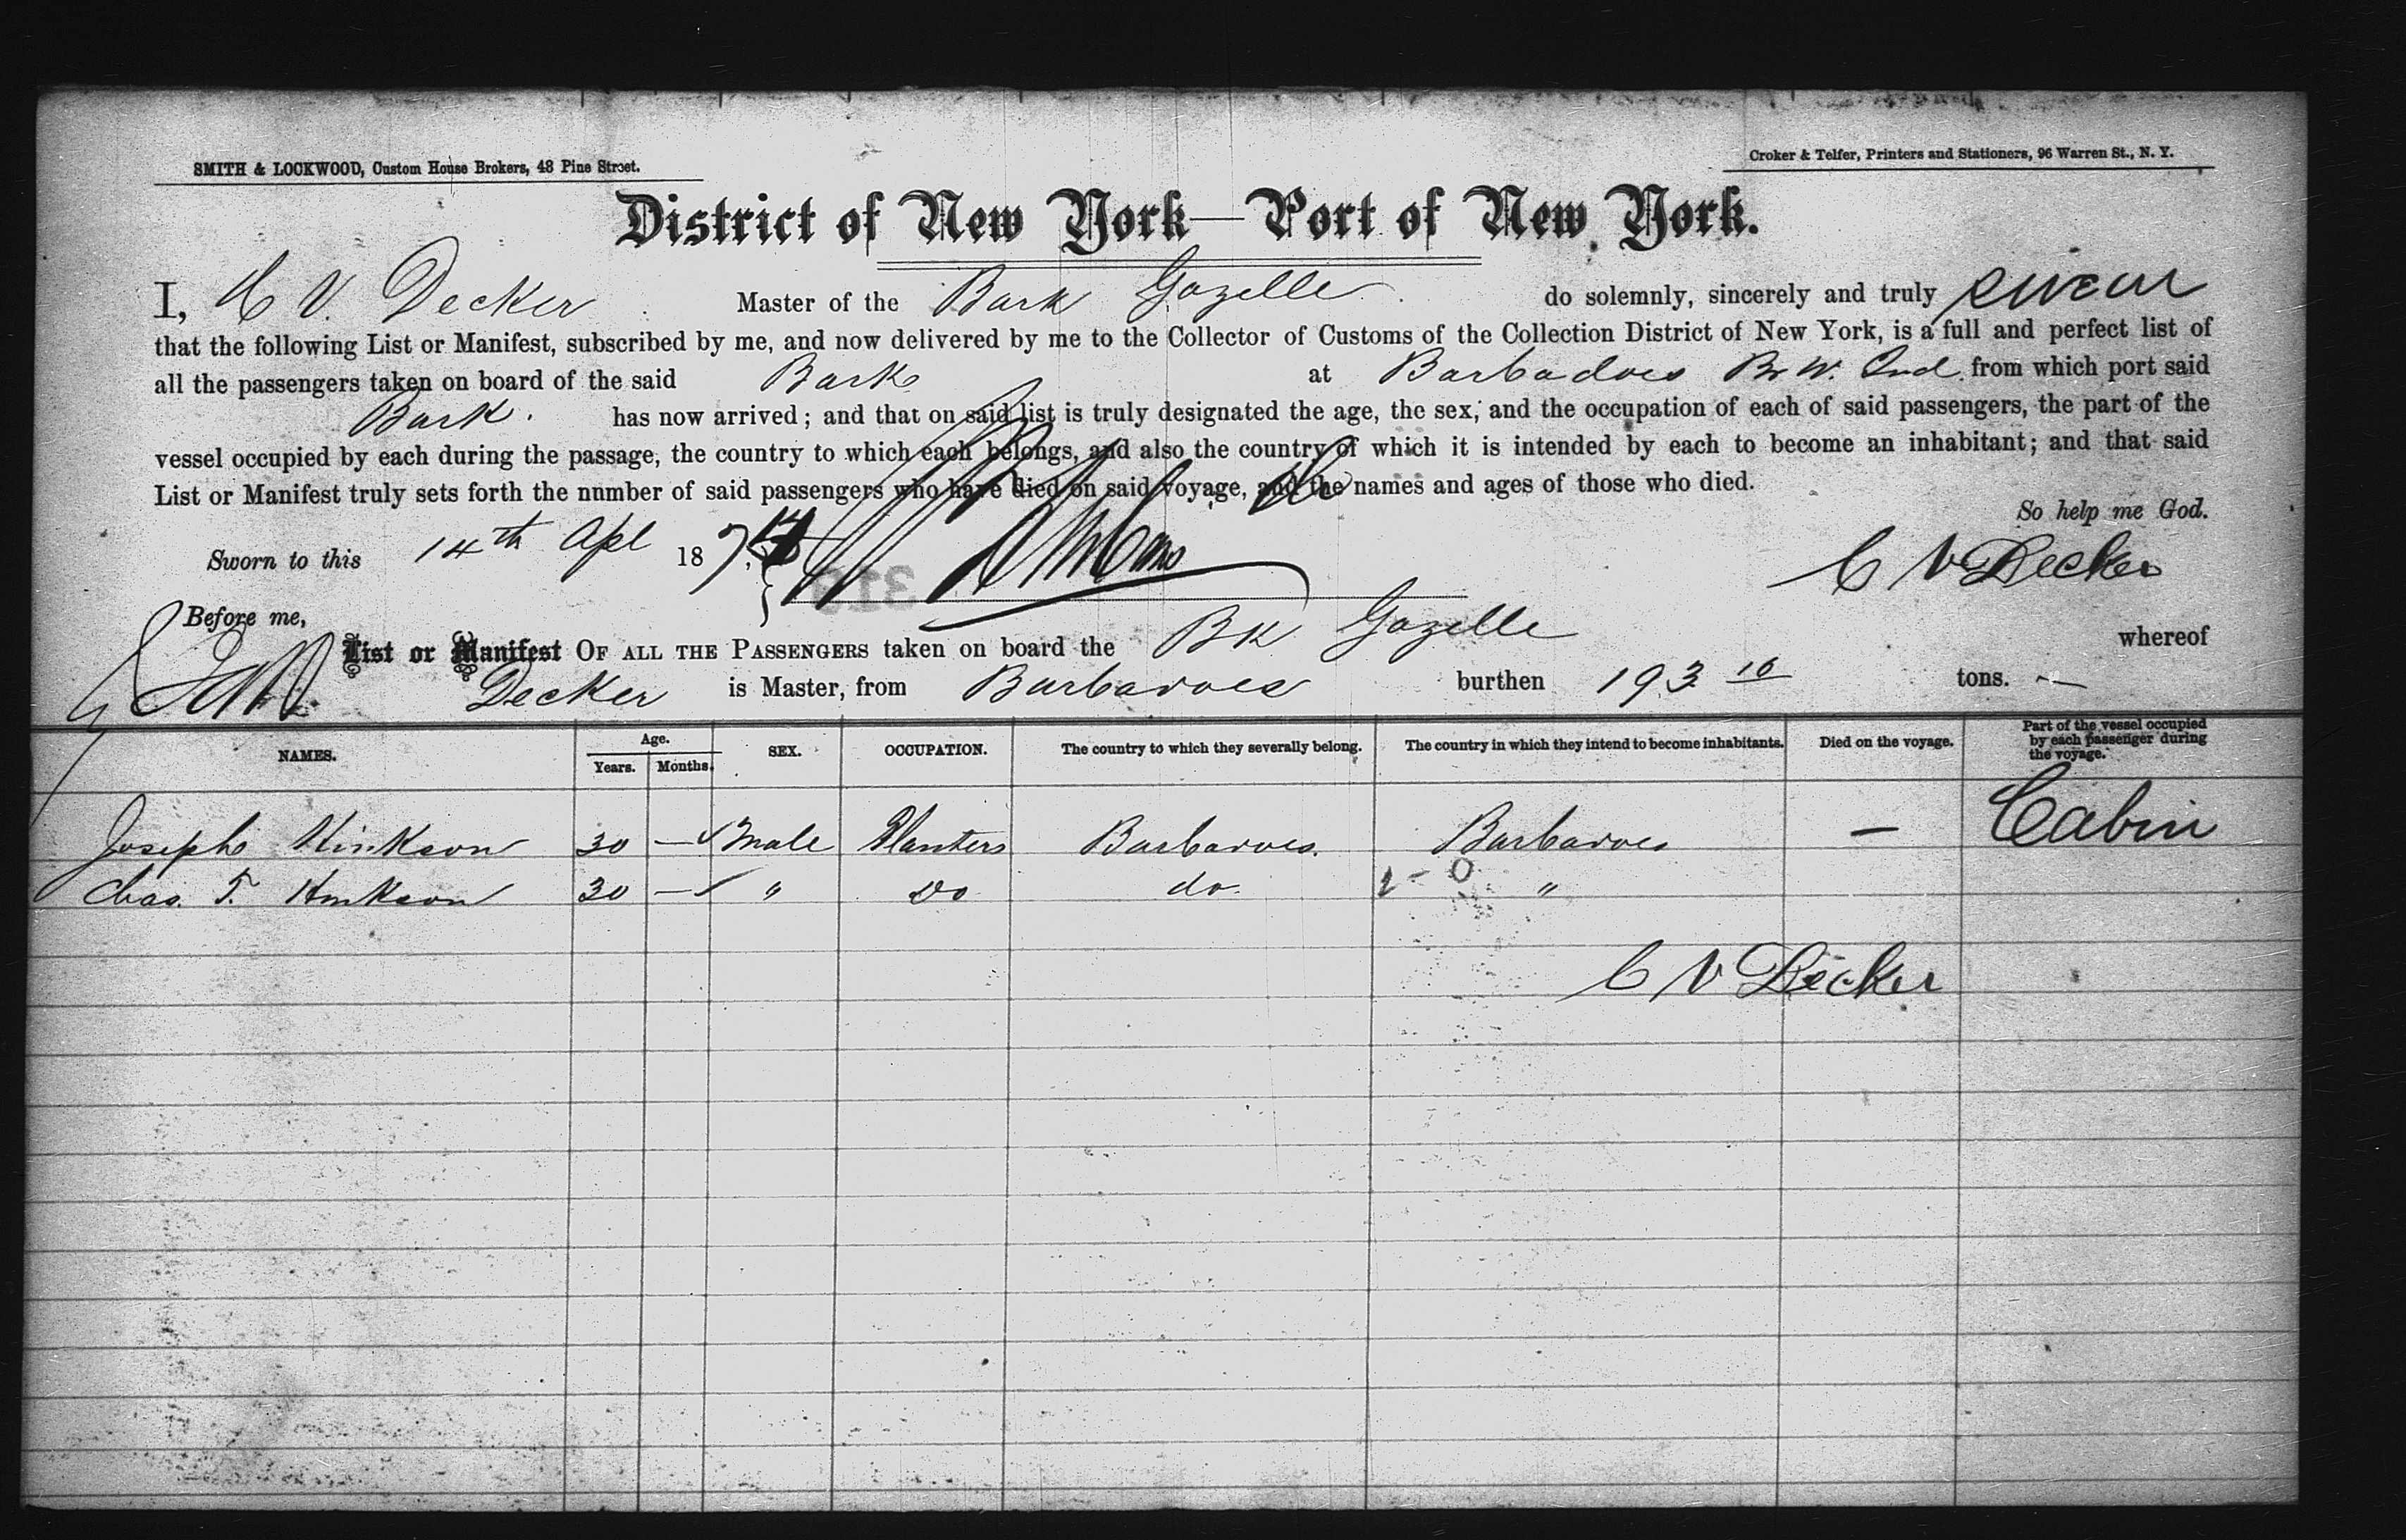 SMITH & LOCKWOOD, Custom House Brokers, 48 Pine Street.
Croker & Telfer, Printers and Stationers, 96 Warren St., N. Y.
District of New York—Port of New York.
I, C V. Decker Master of the Bark Gazelle do solemnly, sincerely and truly swear
that the following List or Manifest, subscribed by me, and now delivered by me to the Collector of Customs of the Collection District of New York, is a full and perfect list of
all the passengers taken on board of the said Bark at Barbadoes Br W. Ind. from which port said
Bark. has now arrived; and that on said list is truly designated the age, the sex, and the occupation of each of said passengers, the part of the
vessel occupied by each during the passage, the country to which each belongs, and also the country of which it is intended by each to become an inhabitant; and that said
List or Manifest truly sets forth the number of said passengers who have died on said voyage, and the names and ages of those who died.
So help me God.
Sworn to this 14th Apl 1874
C V Decker
Before me,
List or Manifest OF ALL THE PASSENGERS taken on board the Bk Gazelle whereof
Decker is Master, from Barbadoes burthen 193 10 tons. —
NAMES. Age. Years. Months. SEX. OCCUPATION. The country to which they severally belong. The country in which they intend to become inhabitants. Died on the voyage. Part of the vessel occupied by each passenger during the voyage.
Joseph Hinkson 30 — Male Planters Barbadoes. Barbadoes — Cabin
Chas. T. Hinkson 30 — " Do do. "
C V Decker